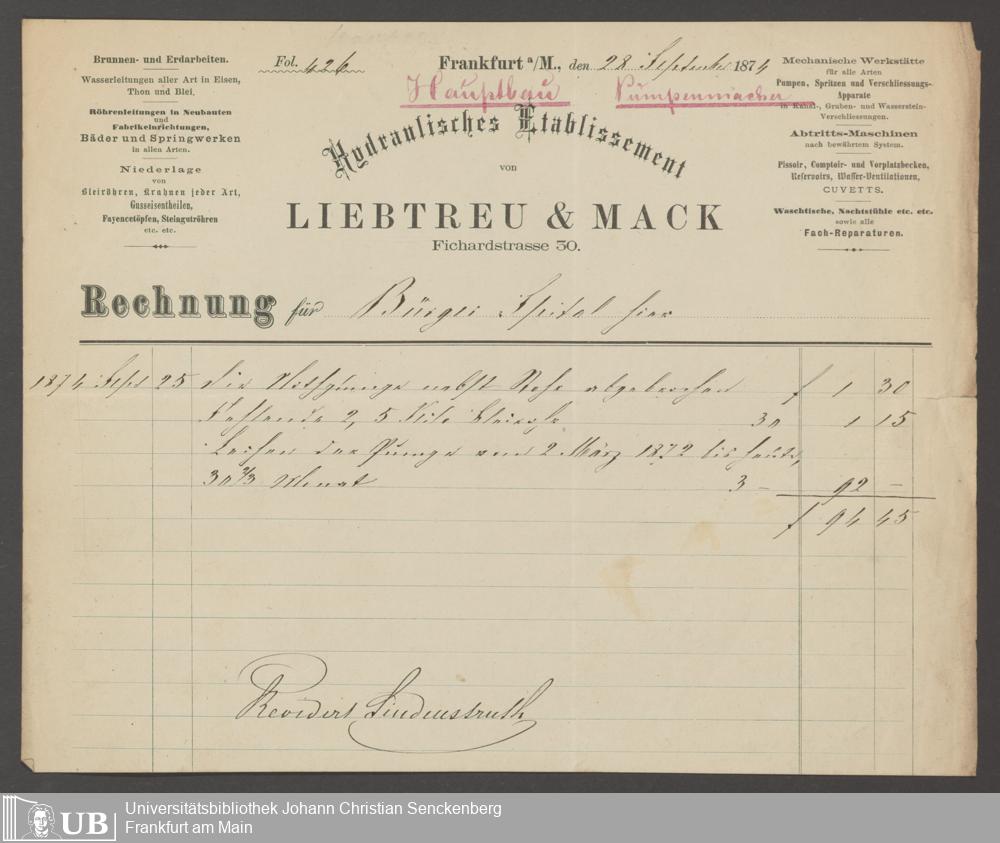 Brunnen- und Erdarbeiten.
Wasserleitungen aller Art in Eisen,
Thon und Blei,
Röhrenleitungen in Neubauten
und
Fabrikeinrichtungen,
Bäder und Springwerken
in allen Arten.
Niederlage
von
Bleiröhren, Krahnen jeder Art,
Gusseisentheilen,
Fayencetöpfen, Steingutröhren
etc. etc.
Fol. 426
Frankfurt a/M., den 28 September 1874
Hauptbau Pumpenmacher
Hydraulisches Etablissement
von
LIEBTREU & MACK
Fichardstrasse 30.
Mechanische Werkstätte
für alle Arten
Pumpen, Spritzen und Verschliessungs-
Apparate
in Kanal-, Gruben- und Wasserstein-
Verschliessungen.
Abtritts-Maschinen
nach bewährtem System.
Pissoir, Comptoir- und Vorplatzbecken,
Reservoirs, Wasser-Ventilationen,
CUVETTS.
Waschtische, Nachtstühle etc. etc.
sowie alle
Fach-Reparaturen.
Rechnung für Bürger Spital hier
1874 Sept 25 Die Nothpumpe nebst Rohr abgebrochen f 1 30
Fehlende 2,5 Kilo Bleirohr 30 1 15
Leihen der Pumpe vom 2 März 1872 bis heute,
30 2/3 Monat 3 – 92 –
f 94 45
Revidirt Lindenstruth
UB
Universitätsbibliothek Johann Christian Senckenberg
Frankfurt am Main